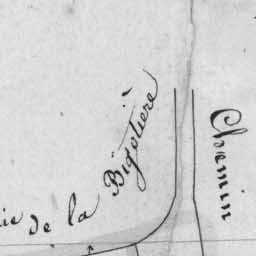 de la Bigotiere
Chemin